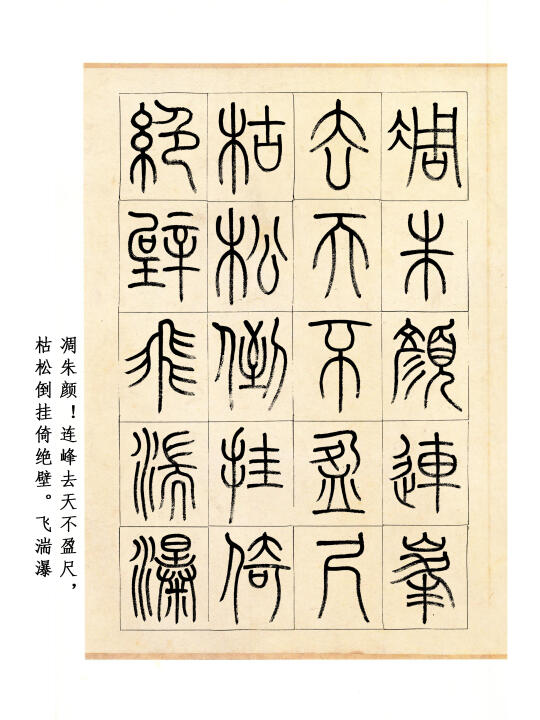 凋朱顏連峯
去天不盈尺
枯松倒挂倚
絕壁飛湍瀑
凋朱颜！连峰去天不盈尺，
枯松倒挂倚绝壁。飞湍瀑